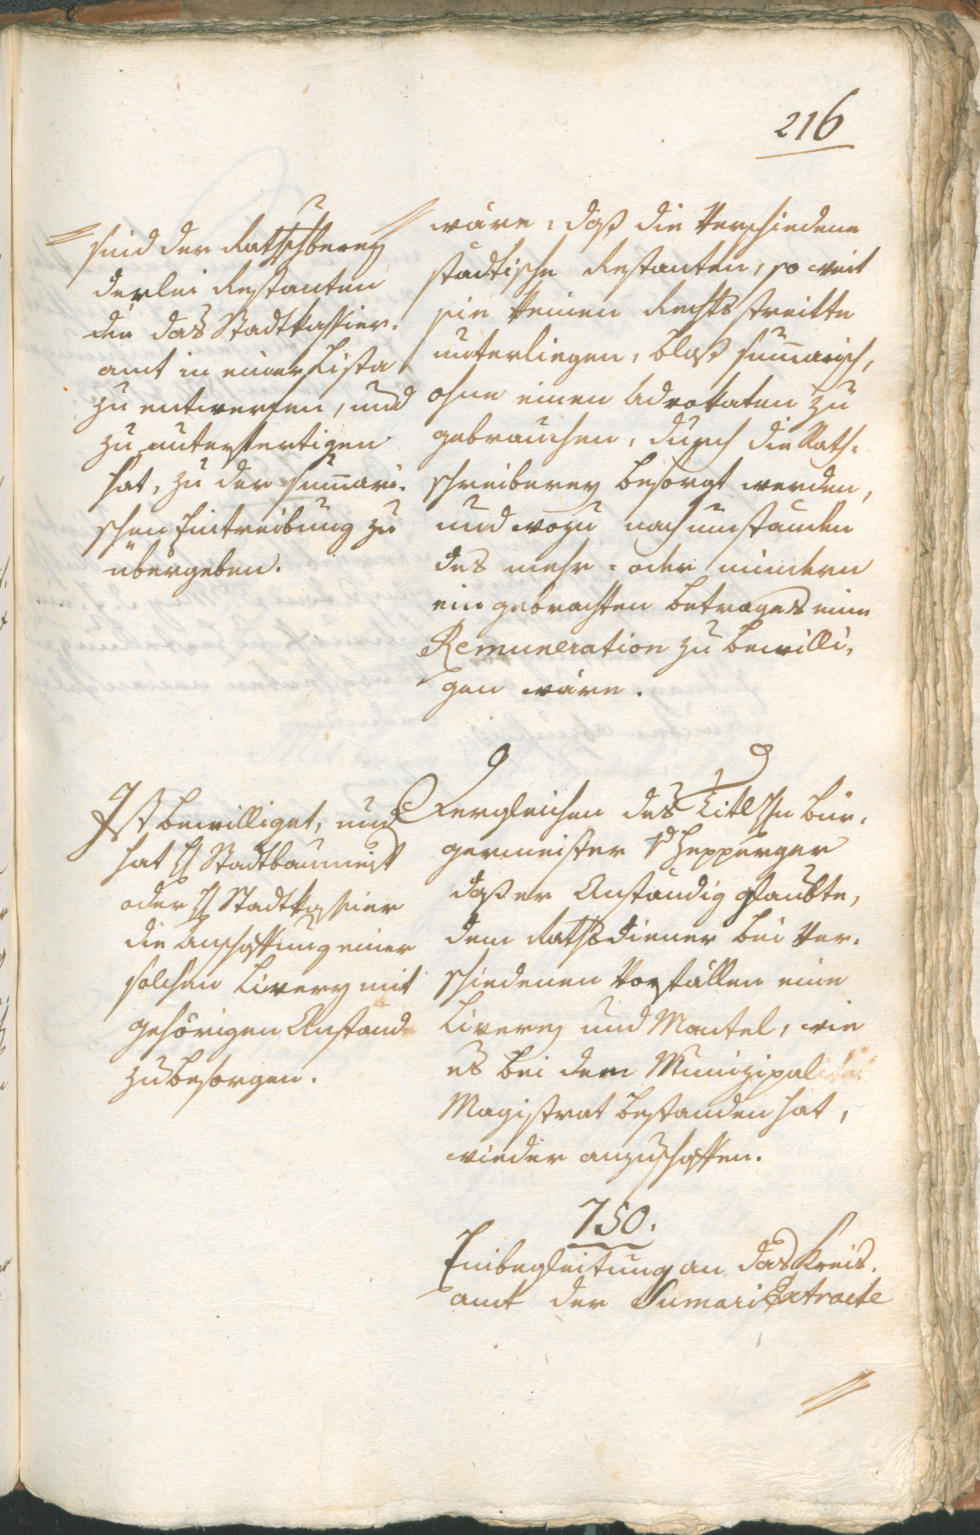 216
sind der Rathschreiberey
derlei Restanten
die das Stadtkassier-
amt in einer Lista
zu entwerfen, und
zu unterfertigen
hat, zu der sum̄ari-
schen Eintreibung zu
übergeben.
wäre: daß die verschiedene
städtische Restanten, so weit
sie keinen Rechtsstreitte
unterliegen, blos sum̄arisch,
ohne einen Advokaten zu
gebrauchen, durch die Rath-
schreiberey besorgt werden,
und wozu nach umständen
des mehr- oder mindern
eingebrachten betrages eine
Remuneration zu bewilli-
gen wäre.
Ist bewilliget, und
hat H Stadtbaumeist
oder H Stadtkassier
die Anschaffung einer
solchen Liverey mit
gehörigen Anstande
zu besorgen.
Dergleichen des Titl Hn Bür-
germeister Hepperger
daß er Anständig glaubte,
dem Rathsdiener bei ver-
schiedenen Vorfällen eine
Liverey und Mantel, wie
es bei dem Munizipal
Magistrat bestanden hat,
wieder anzuschaffen.
750.
Einbegleitung an das Kreis-
amt der Sumari Extracte